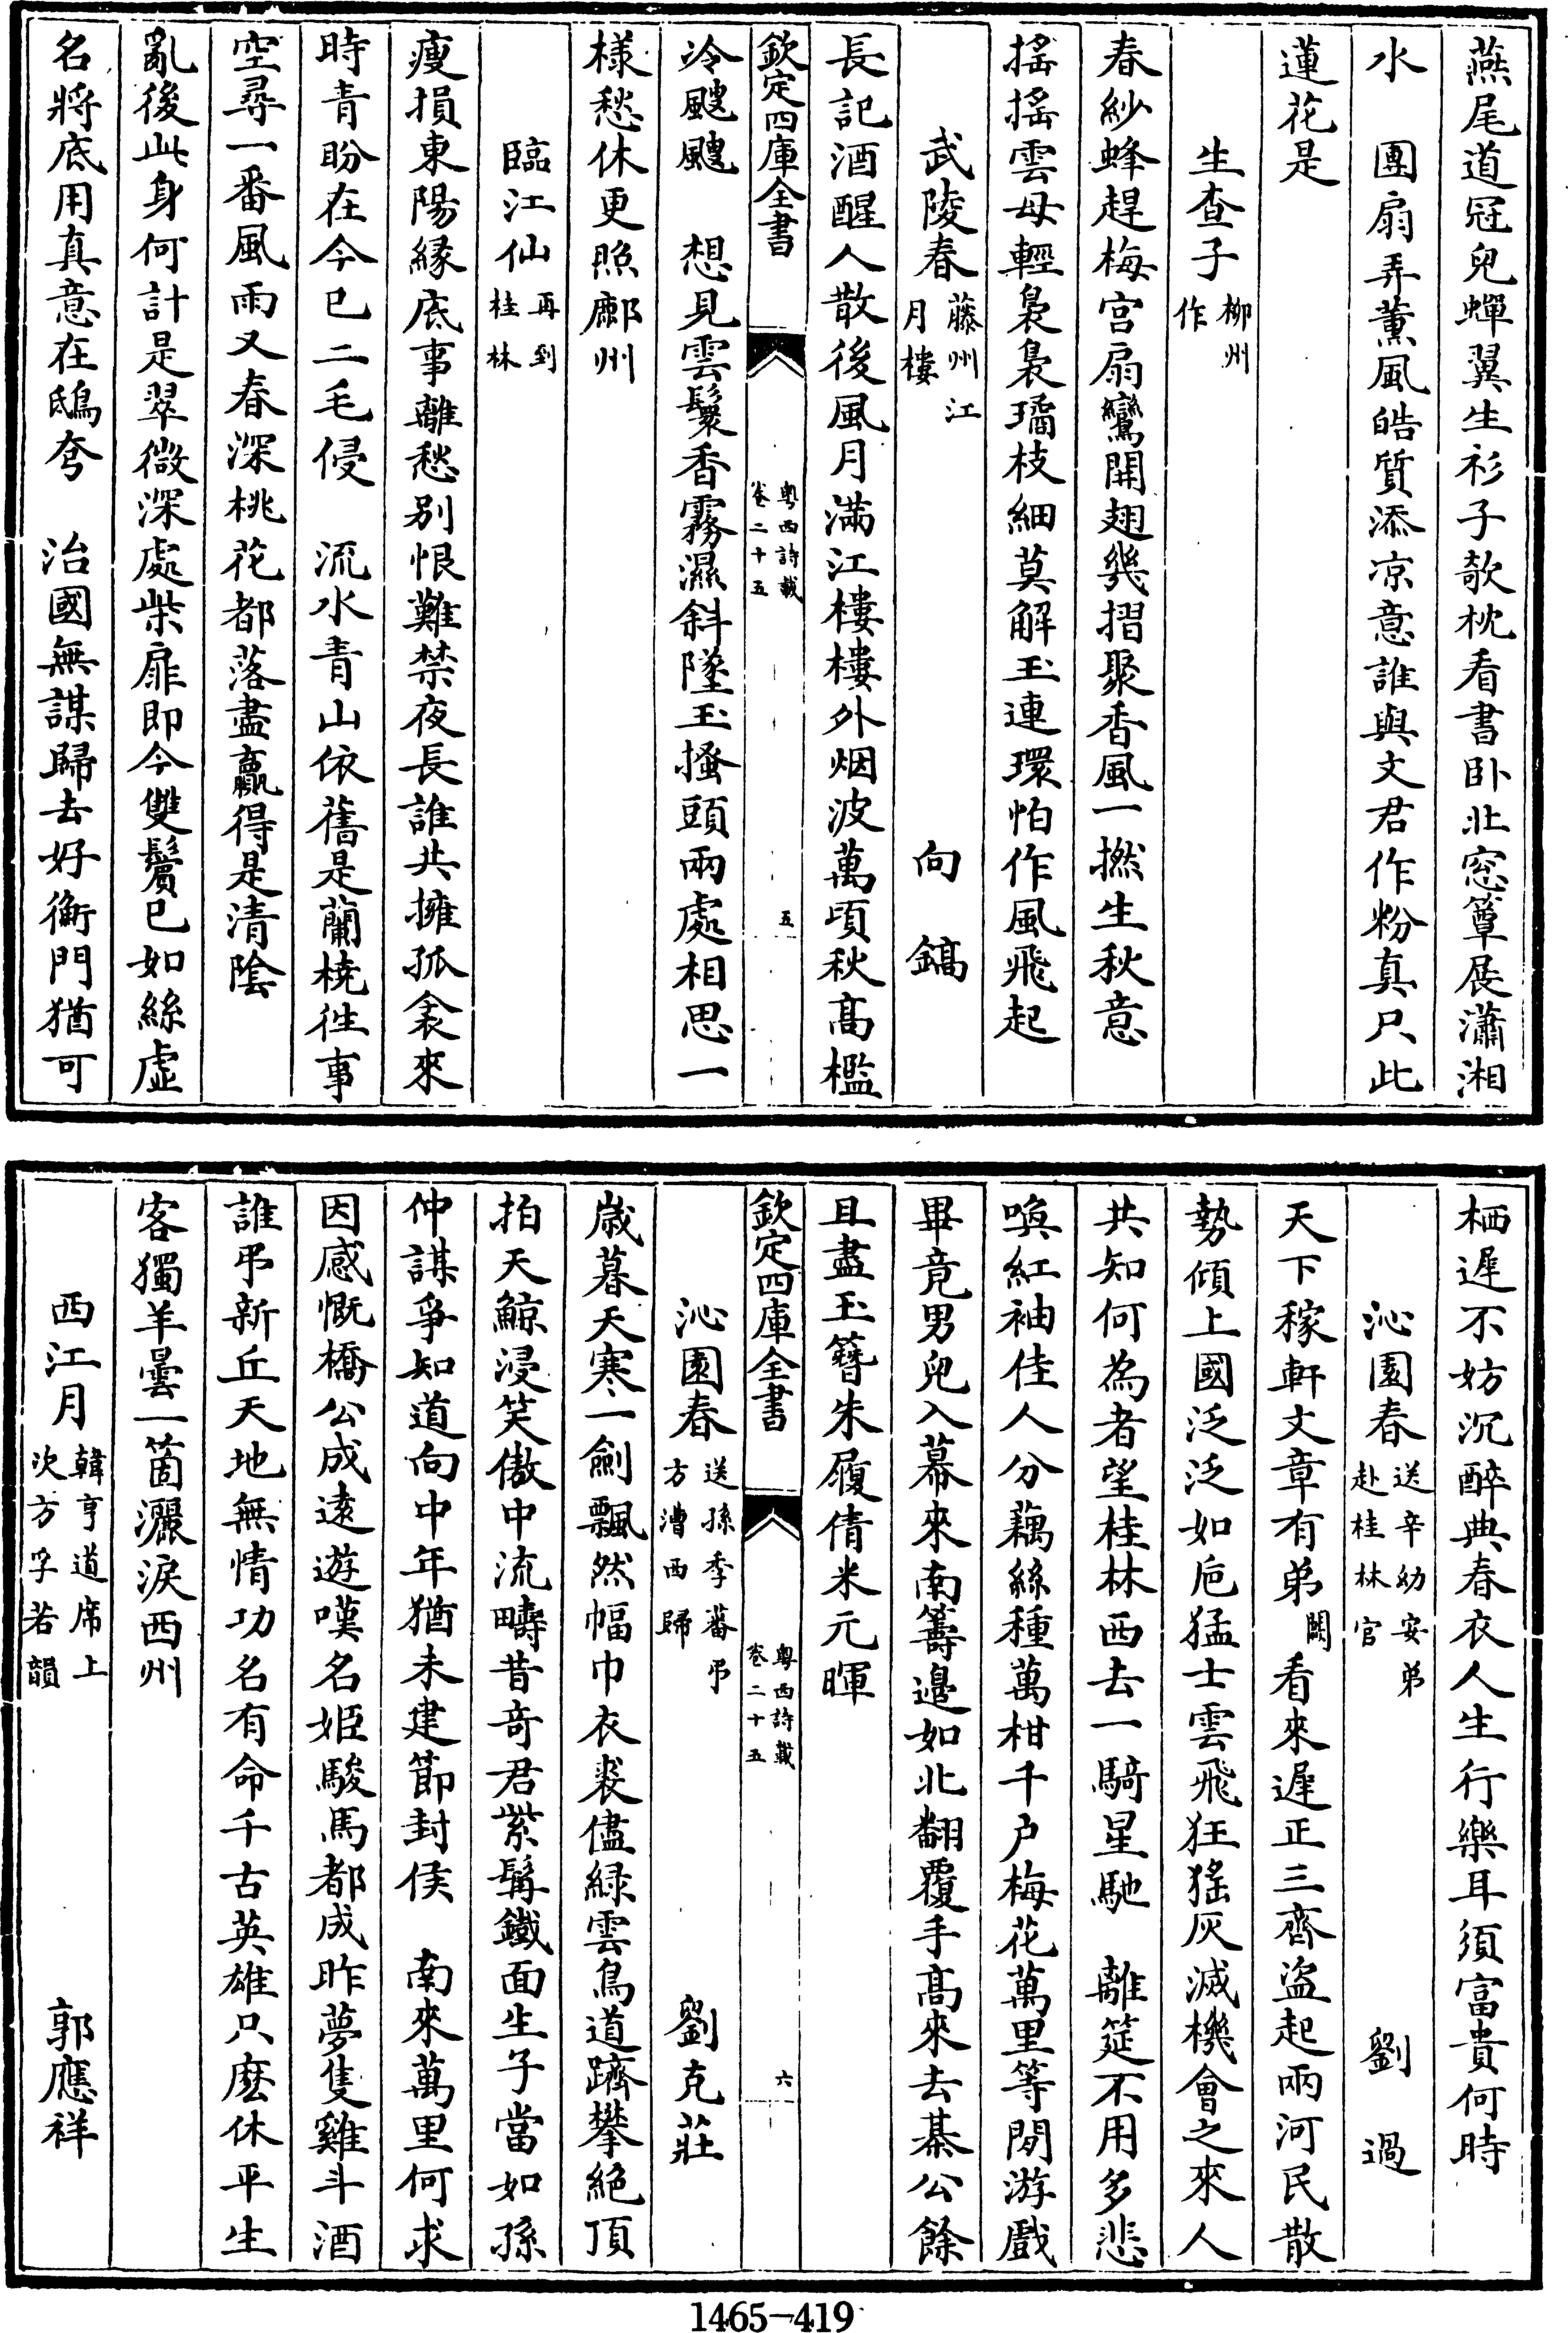 燕尾道冠兒蟬翼生衫子欹枕看書卧北窓簟展瀟湘
水　團扇弄薰風皓質添凉意誰與文君作粉真只此
蓮花是
生查子柳州作
春紗蜂趕梅宮扇鸞開翅幾摺聚香風一撚生秋意
摇摇雲母輕裊裊璚枝細莫解玉連環怕作風飛起
武陵春藤州江月樓　向鎬
長記酒醒人散後風月滿江樓樓外烟波萬頃秋髙檻
欽定四庫全書　粤西詩載卷二十五　五
冷颼颼　想見雲鬟香霧濕斜墜玉搔頭兩處相思一
樣愁休更照鄜州
臨江仙再到桂林
瘦損東陽緣底事離愁别恨難禁夜長誰共擁孤衾來
時青盼在今已二毛侵　流水青山依舊是蘭橈徃事
空尋一番風雨又春深桃花都落盡贏得是清陰
亂後此身何計是翠微深處柴扉即今雙鬢已如絲虚
名將底用真意在鴟夸　治國無謀歸去好衡門猶可
栖遲不妨沉醉典春衣人生行樂耳須富貴何時
沁園春送辛幼安弟赴桂林官　劉過
天下稼軒文章有弟闕看來遲正三齊盜起兩河民散
勢傾上國泛泛如巵猛士雲飛狂猺灰滅機會之來人
共知何為者望桂林西去一騎星馳　離筵不用多悲
喚紅袖佳人分藕絲種萬柑千户梅花萬里等閒游戲
畢竟男兒入幕來南籌邊如北翻覆手髙來去綦公餘
且盡玉簪朱履倩米元暉
欽定四庫全書　粤西詩載卷二十五　六
沁園春送孫季蕃弔方漕西歸　劉克莊
歳暮天寒一劍飄然幅巾衣裘儘緑雲鳥道躋攀絶頂
拍天鯨浸笑傲中流疇昔竒君紫髯鐵面生子當如孫
仲謀爭知道向中年猶未建節封侯　南來萬里何求
因感慨橋公成遠遊嘆名姬駿馬都成昨夢隻雞斗酒
誰弔新丘天地無情功名有命千古英雄只麽休平生
客獨羊曇一箇灑淚西州
西江月韓亨道席上次方孚若韻　郭應祥
1465-419